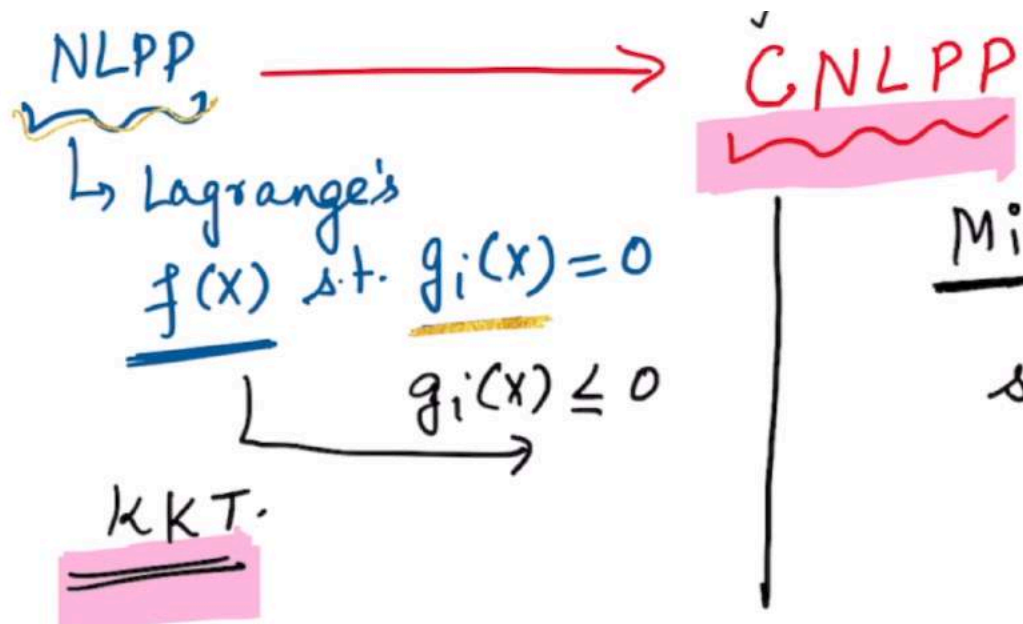 NLPP → CNLPP
↳ Lagrange's
f(X) s.t. gᵢ(X) = 0
gᵢ(X) ≤ 0
KKT.
Mi
s